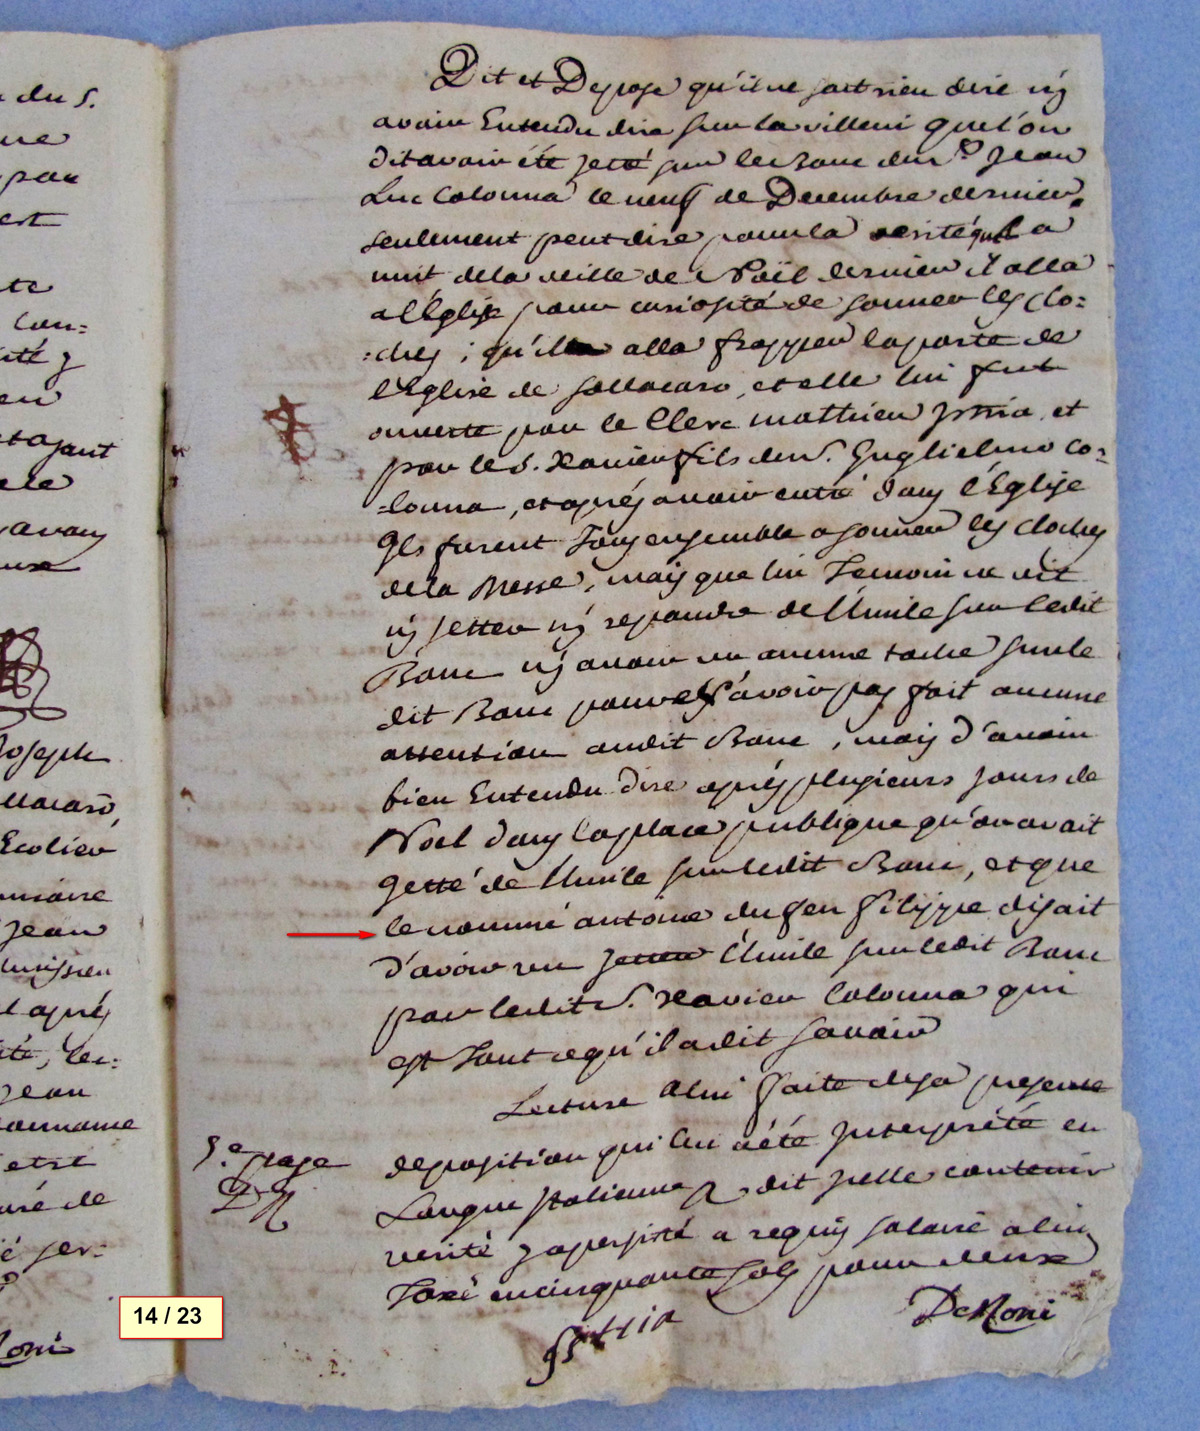 du S.
ne
par
ert
te
Con=
ité y
en
ajant
avary
Joseph
llacarò,
Ecolier
Jean
hussier
l après
té, lec:
Jean
ournome
et st
uré de
é ser:
Roni
14 / 23
Dit et Depose qu'il ne sait rien dire nÿ
avoir Entendu dire sur la villeni que l'on
dit avoir été jetté sur le Banc du S.r Jean
Luc Colonna le neuf de Decembre dernier
seulement peut dire pour la verité que la
nuit de la veille de Noël dernier il alla
a l'Eglise pour curiosité de sonner les clo=
:ches ; qu'il alla frapper la porte de
l'Eglise de sollacaro, et elle lui fut
ouverte par le Clerc mathieu jstria, et
par le S. Xavier fils du S. Guglielmo Co=
=lonna, et après avoir entré dans l'Eglise
Ils furent Tous ensemble a sonner les cloches
de la Messe, mais que lui Temoin ne vit
nÿ jetter nÿ repandre de l'huile sur ledit
Banc nÿ avoir vu aucune tache sur le
dit Banc pour n'avoir pas fait aucune
attention audit Banc, mais d'avoir
bien Entendu dire après plusieurs jours de
Noel dans la place publique qu'on avait
getté de l'huile sur ledit Banc, et que
le nommé antoine du feu filippe disait
d'avoir vu jetter l'huile sur ledit Banc
par ledit S. Xavier Colonna qui
est Tout ce qu'il a dit savoir
Lecture a lui faite de sa presente
deposition qui lui a été jnterpreté en
5.e page
Langue jtalienne a dit jcelle contenir
verité y a persisté a requis salaire a lui
Taxé en cinquante sols pour deux
jstria
De Roni